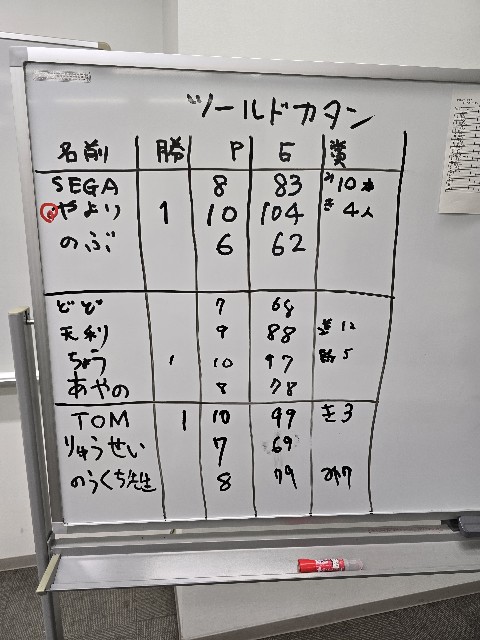 ツールドカタン
名前 勝 P E 賞
SEGA 8 83 10
やより 1 10 104 き 4人
のぶ 6 62
どど 7 68
天利 9 88 12
ちょう 1 10 97 5
あやの 8 78
TOM 1 10 99 き3
りゅうせい 7 69
のうくち先生 8 79 みや7